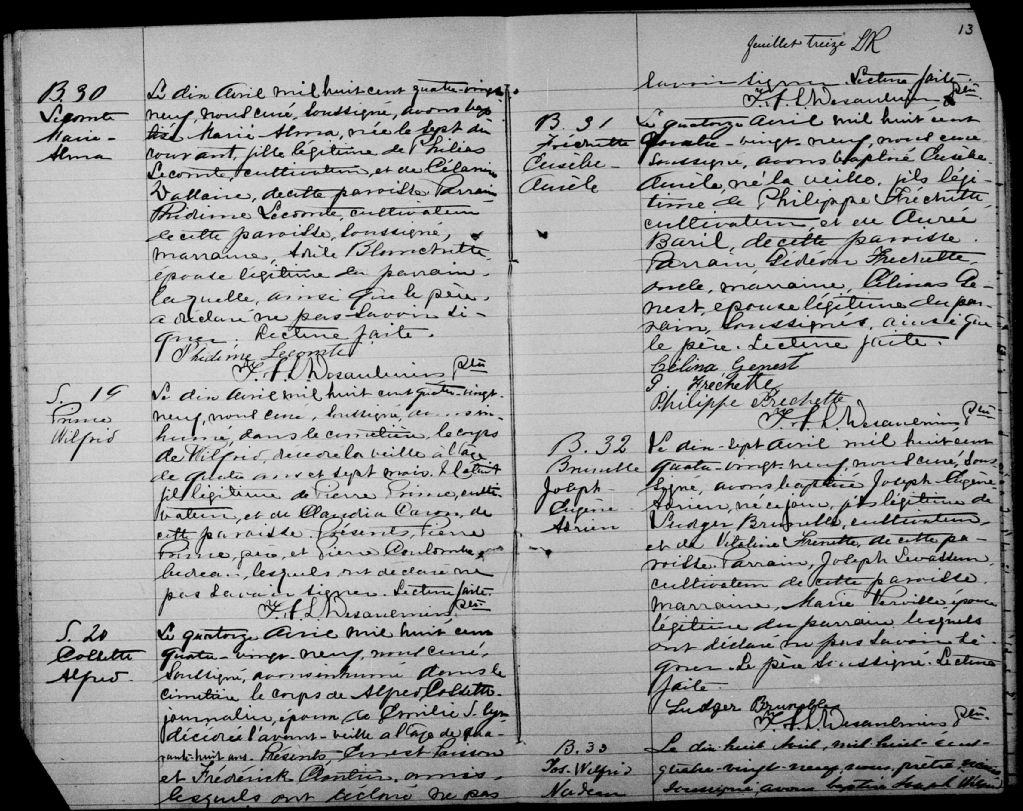 B 30
Lecomte
Marie-
Alma
Le dix Avril mil huit cent quatre-vingt-
neuf, nous curé, soussigné, avons bap
tisé Marie-Alma, née le sept du
courant, fille légitime de Philias
Lecomte, cultivateur, et de Célanire
Vallaire, de cette paroisse. Parrain
Phidime Lecomte, cultivateur
de cette paroisse, soussigné,
marraine, Blanchette
épouse légitime du parrain
laquelle, ainsi que le père,
a déclaré ne pas savoir si-
gner. Lecture faite.
Phidime Lecomte
F. X. L. Desaulniers Ptre
S. 19
Prince
Wilfrid
Le dix Avril mil huit cent quatre-vingt-
neuf, nous curé, soussigné, avons in-
humé, dans le cimetière, le corps
de Wilfrid, décédé la veille à l'âge
de quatre ans et sept mois. Il était
fils légitime de Pierre Prince, culti-
vateur, et de Claudia Caron, de
cette paroisse. Présents, Pierre
Prince, père, et Pierre Coulombe,
bedeau, lesquels ont déclaré ne
pas savoir signer. Lecture faite
F. X. L. Desaulniers Ptre
S. 20
Collette
Alfred
Le quatorze Avril mil huit cent
quatre-vingt-neuf, nous curé,
soussigné, avons inhumé dans le
cimetière le corps de Alfred Collette
journalier, époux de Emilie
décédé l'avant-veille à l'âge de qua
rante-huit ans. Présents, Ernest
et Frédérick amis
lesquels ont déclaré ne pas
feuillet treize LR
13
savoir signer. Lecture faite.
F. X. L. Desaulniers Ptre
B. 31
Fréchette
Eusèbe
Aurèle
Le quatorze Avril mil huit cent
quatre-vingt-neuf, nous curé
soussigné, avons baptisé Eusèbe
Aurèle, né la veille, fils légi-
time de Philippe Fréchette,
cultivateur, et de
Baril, de cette paroisse.
Parrain, Gédéon Frechette,
oncle, marraine, Célina Ge-
nest, épouse légitime du par-
rain, soussignés, ainsi que
le père. Lecture faite.
Célina Genest
Frechette
Philippe Frechette
F. X. L. Desaulniers Ptre
B. 32
Brunelle
Joseph
Eugène
Adrien
Le dix-sept Avril mil huit cent
quatre-vingt-neuf, nous curé, sous-
signé, avons baptisé Joseph-Eugène
Adrien, né ce jour, fils légitime de
Ludger Brunelle, cultivateur,
et de Vitaline Frenette, de cette pa-
roisse. Parrain, Joseph Levasseur,
cultivateur de cette paroisse.
marraine, Marie Verville épouse
légitime du parrain lesquels
ont déclaré ne pas savoir si-
gner. Le père soussigné. Lecture
faite.
Ludger Brunelle
F. X. L. Desaulniers Ptre
B. 33
Jos-Wilfrid
Nadeau
Le dix-huit Avril, mil huit-cent-
quatre-vingt-neuf, nous, prêtre
soussigné, avons baptisé Joseph Wilfrid